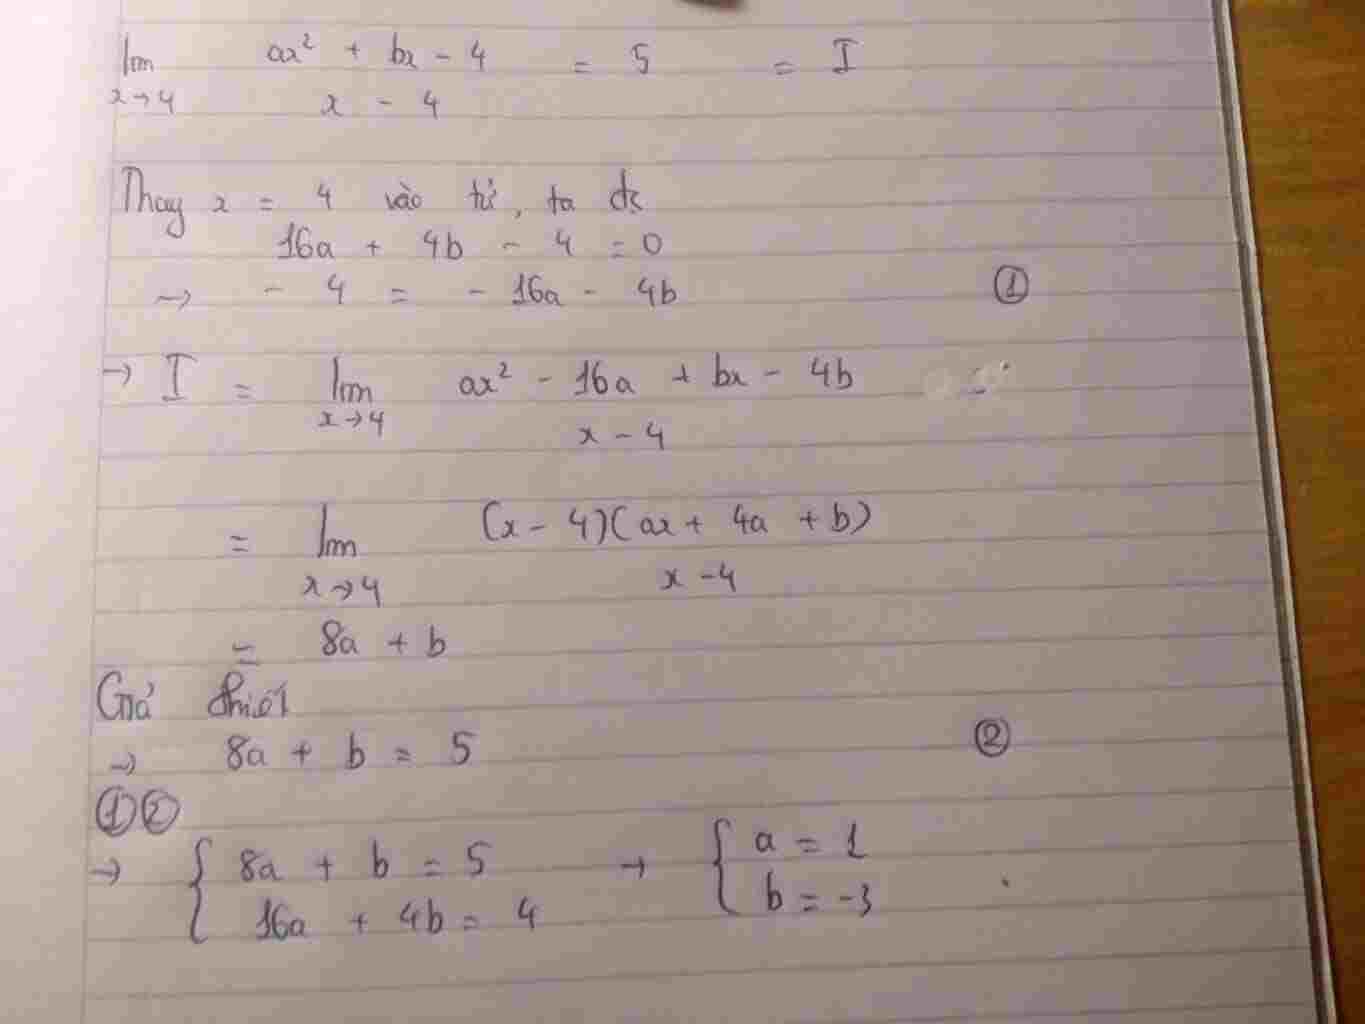 lim ax² + bx - 4 = 5 = I
x→4 x - 4
Thay x = 4 vào tử, ta đc
16a + 4b - 4 = 0
→ - 4 = - 16a - 4b ①
→ I = lim ax² - 16a + bx - 4b
x→4 x - 4
= lim (x - 4)(ax + 4a + b)
x→4 x - 4
= 8a + b
Giả thiết
→ 8a + b = 5 ②
①②
→ { 8a + b = 5 → { a = 1
16a + 4b = 4 b = -3